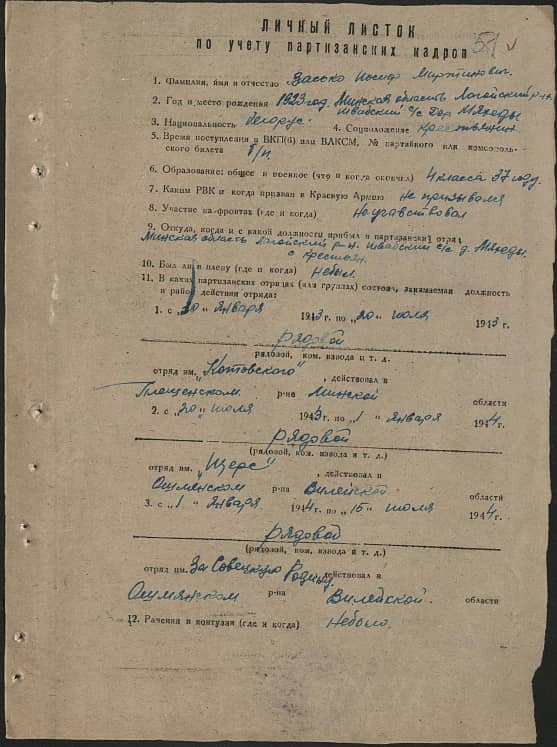 ЛИЧНЫЙ ЛИСТОК
по учету партизанских кадров
1. Фамилия, имя и отчество Засько Иосиф Мартинович.
2. Год и место рождения 1923 год. Минская область Логойский р-н
Швабский с/с дер. Мяходы
3. Национальность белорус. 4. Соцположение крестьянин
5. Время поступления в ВКП(б) или ВЛКСМ, № партийного или комсомоль-
ского билета б/п.
6. Образование: общее и военное (что и когда окончил) 4 класса 37 году.
7. Каким РВК и когда призван в Красную Армию не призывался
8. Участие на фронтах (где и когда) Не участвовал
9. Откуда, когда и с какой должности прибыл в партизанский отряд
Минская область Логойский р-н. Швабский с/с д. Мяходы.
с крестьян.
10. Был ли в плену (где и когда) Небыл.
11. В каких партизанских отрядах (или группах) состоял, занимаемая должность
и район действия отряда:
1. с „30“ января 1943 г. по „20“ июля 1943 г.
рядовой
рядовой, ком. взвода и т. д.
отряд им. „Котовского“, действовал в
Плещенском р-не Минской области
2. с „20“ июля 1943 г. по „1“ января 1944 г.
рядовой
(рядовой, ком. взвода и т. д.)
отряд им. „Щерс“, действовал в
Ошмянском р-на Вилейской области
3. с „1“ января 1944 г. по „15“ июля 1944 г.
рядовой
(рядовой, ком. взвода и т. д.)
отряд им. За Советскую Родину, действовал в
Ошмянском р-на Вилейской. области
12. Ранения и контузии (где и когда) Небыло.